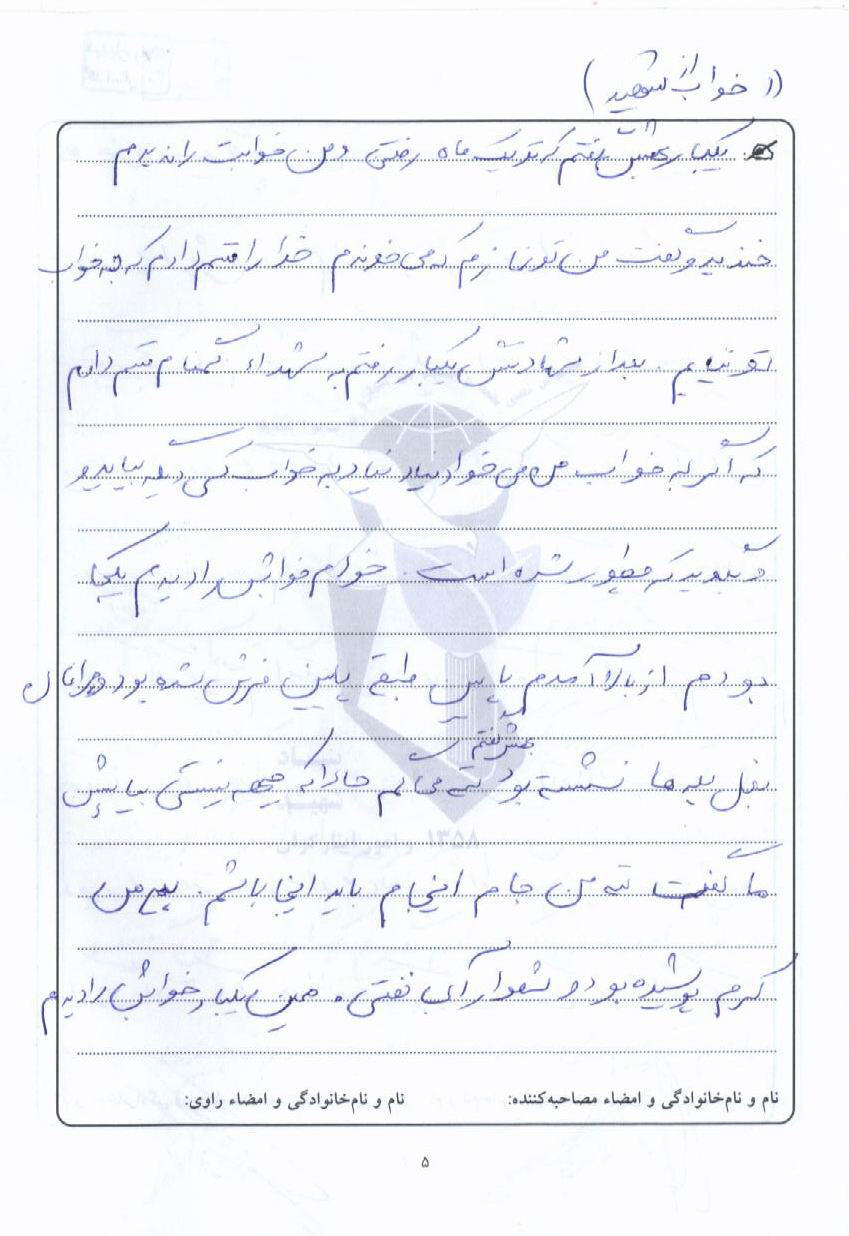 (( خواب از شهید )
یکبار بهش گفتم که تو یک ماه رفتی و من خوابت را ندیدم
خندید و گفت من تو نمازم که می خوندم خدا را قسم دادم که به خواب
تو نیایم . بعد از شهادتش یکبار رفتم به شهداء گمنام قسم دادم
که اگر به خواب من می خواد نیاد نیاد به خواب کسی دیگه بیاید و
و بگوید که چطور شده است . خودم خوابش را دیدم یکجا
بودم از بالا آمدم پایین طبقه پایین فرش شده بود و
بهش گفتم
بغل پله ها نشسته بود حالا که نیستی بیا پیش
ما گفت نه من جام اینجام باید اینجا باشم .
کرم پوشیده بود و شلوار آبی نفتی . همین یکبار خوابش را دیدم
نام و نام‌خانوادگی و امضاء مصاحبه‌کننده:
نام و نام‌خانوادگی و امضاء راوی:
۵